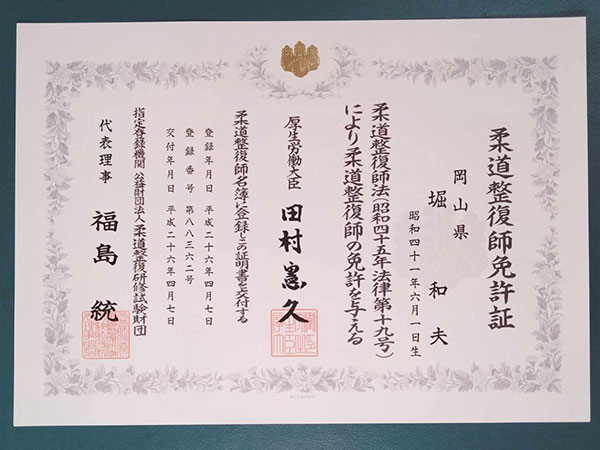 柔道整復師免許証
岡山県
堀和夫
昭和四十一年六月一日生
柔道整復師法(昭和四十五年法律第十九号)
により柔道整復師の免許を与える
厚生労働大臣 田村憲久
柔道整復師名簿に登録しこの証明書を交付する
登録年月日 平成二十六年四月七日
登録番号 第八八三六二号
交付年月日 平成二十六年四月七日
指定登録機関 公益財団法人柔道整復研修試験財団
代表理事 福島統